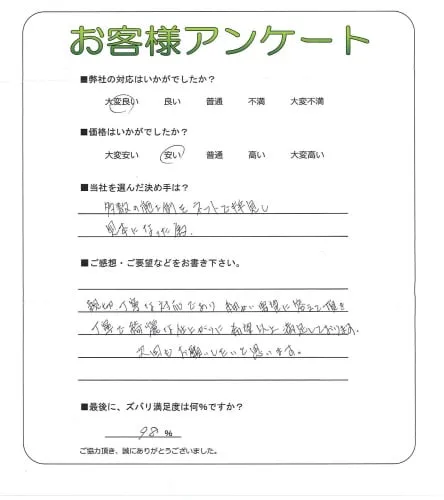 お客様アンケート
■弊社の対応はいかがでしたか?
大変良い 良い 普通 不満 大変不満
■価格はいかがでしたか?
大変安い 安い 普通 高い 大変高い
■当社を選んだ決め手は?
多数の施工例をネットで拝見し
見本になった為。
■ご感想・ご要望などをお書き下さい。
親切丁寧な対応であり 細かい要望に答えて頂き
丁寧で綺麗な仕上がりに希望以上 満足しております。
次回もお願いしたいと思います。
■最後に、ズバリ満足度は何%ですか?
98 %
ご協力頂き、誠にありがとうございました。